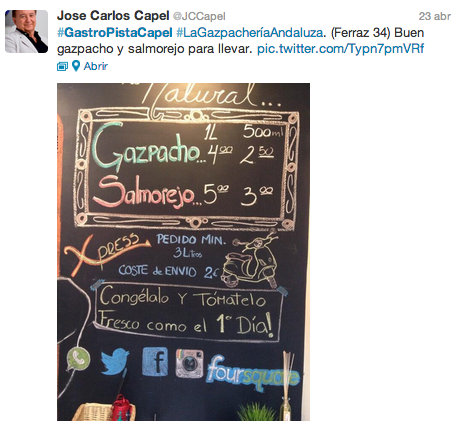 Jose Carlos Capel @JCCapel 23 abr
#GastroPistaCapel #LaGazpacheríaAndaluza. (Ferraz 34) Buen
gazpacho y salmorejo para llevar. pic.twitter.com/Typn7pmVRf
Abrir
Natural...
1L 500ml
Gazpacho... 4,00 2,50
Salmorejo... 5,00 3,00
Xpress PEDIDO MIN.
3 Litros
COSTE de ENVIO 2€
Congélalo Y Tómatelo
Fresco como el 1er Día!
f
foursquare